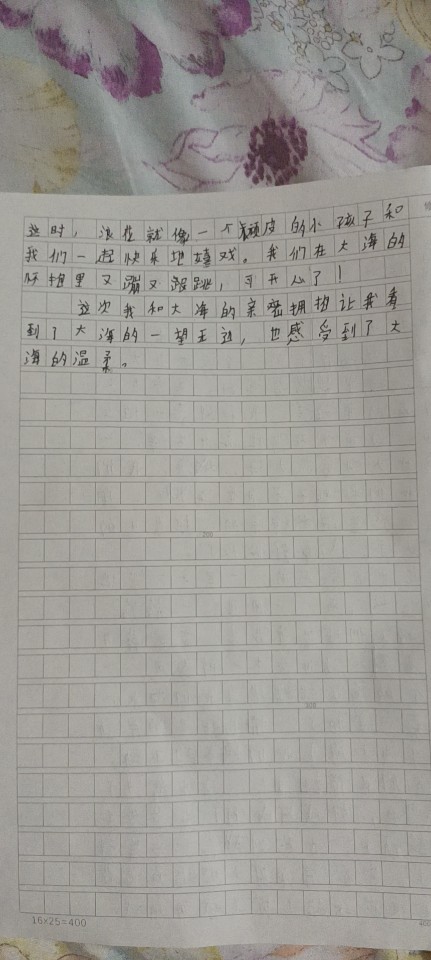 这时，浪花就像一个顽皮的小孩子和
我们一起快乐地嬉戏。我们在大海的
怀抱里又蹦又跳，可开心了！
这次我和大海的亲密拥抱让我看
到了大海的一望无边，也感受到了大
海的温柔。
16×25=400